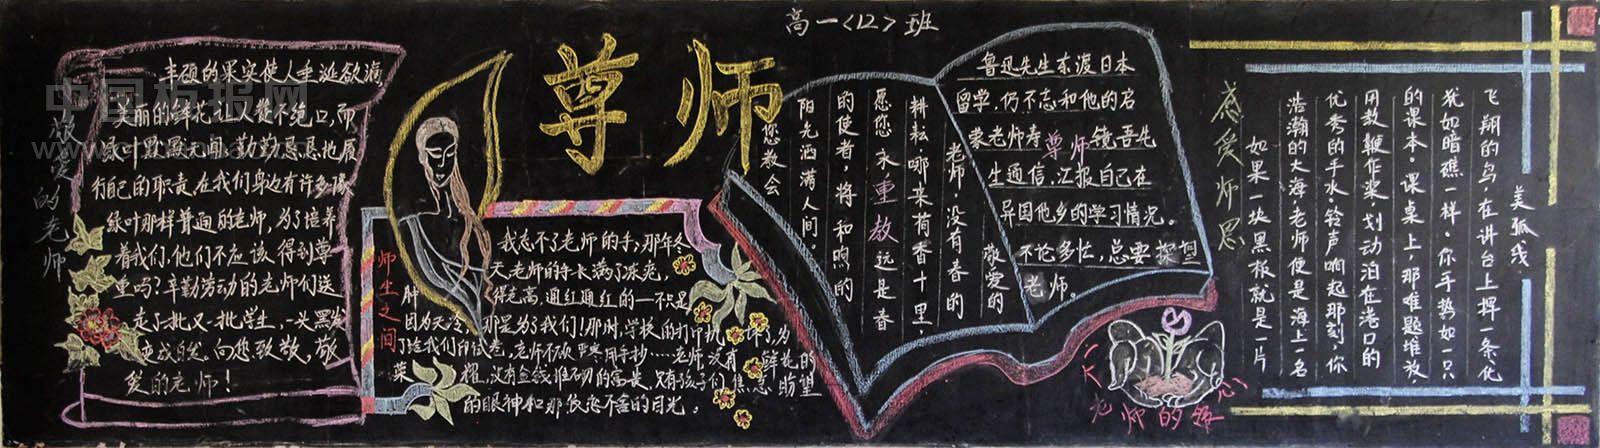 高一<12>班
尊师
敬爱的老师
丰硕的果实使人垂涎欲滴
美丽的鲜花让人赞不绝口,而
绿叶默默无闻,勤勤恳恳地履
行自己的职责,在我们身边有许多像
绿叶那样普通的老师,为了培养
着我们,他们不应该得到尊
重吗?辛勤劳动的老师们送
走了一批又一批学生,一头黑发
变成白发。向您致敬,敬
爱的老师!
师生之间
我忘不了老师的手,那年冬
天老师的手长满了冻疮,
肿得老高,通红通红的一只是
因为天冷,那是为了我们!那时,学校的打印机
了给我们印试卷,老师不顾严寒用手抄…老师没有鲜花的
的眼神和那依恋不舍的目光。
敬爱的
老师,没有春的
耕耘哪来荷香十里,
愿您永重教远是春
的使者,将和煦的
阳光洒满人间。
您教会
鲁迅先生东渡日本
留学,仍不忘和他的启
蒙老师寿尊师镜吾先
生通信,汇报自己在
异国他乡的学习情况。
不论多忙,总要探望
老师。
老师的
感爱师恩
美弧线
飞翔的鸟,在讲台上挥一条化
犹如暗礁一样。你手势如一只
的课本。课桌上,那难题堆放,
用教鞭作桨,划动泊在港口的
优秀的手水。铃声响起那刻,你
浩瀚的大海,老师便是海上一名
如果一块黑板就是一片
中国板报网